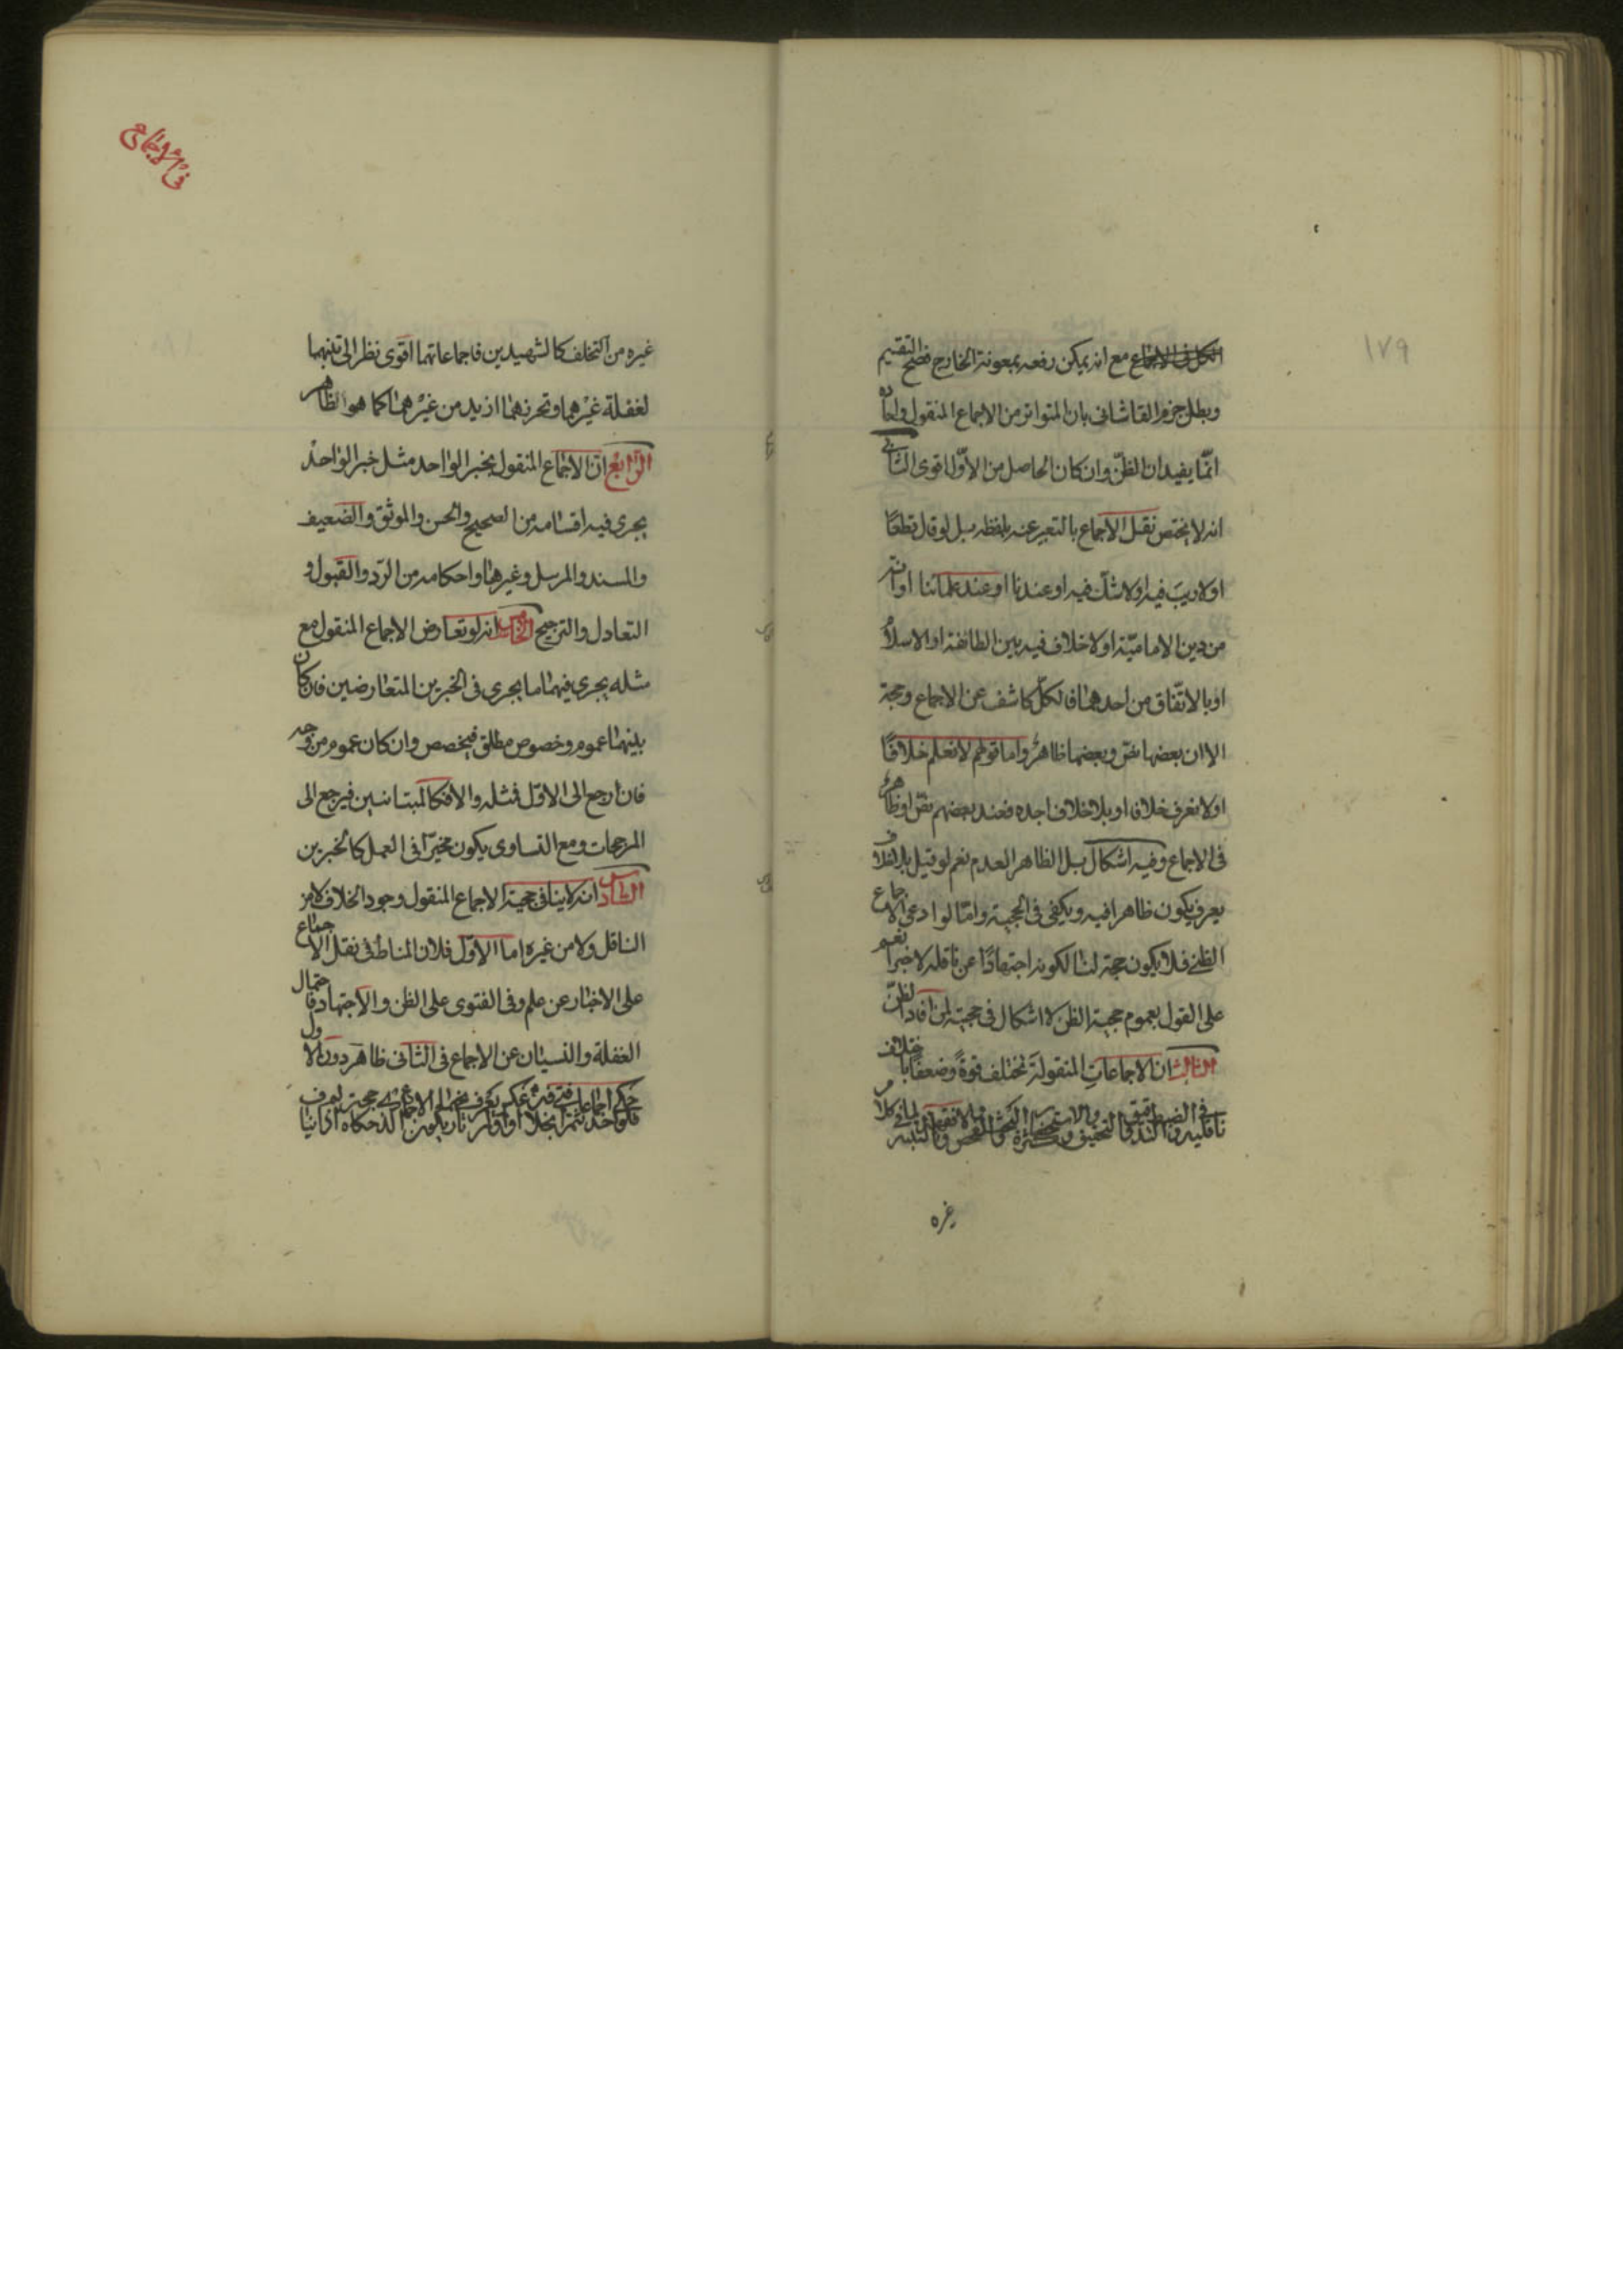 ١٧٩
مع انه يمكن رفعه بمعونة الخارج فصح التقسيم
وبطل جزم القاشانى بان المتواتر من الاجماع المنقول واحاده
انّما يفيدان الظنّ وان كان الحاصل من الاوّل اقوى الثانى
انه لا يختص نقل الاجماع بالتعبير عنه بلفظه بل لو قال قطعًا
او لا ريبَ فيه او لا شكّ فيه او عندنا او عند علمائنا او انه
من دين الاماميّة او لا خلاف فيه بين الطائفة او الاسلام
او بالاتّفاق من احدهما فالكلّ كاشف عن الاجماع وحجة
الا ان بعضها نصّ وبعضها ظاهرٌ واما قولهم لا نعلم خلافًا
او لا نعرف خلافا او بلا خلاف اجده فعند بعضهم نصّ او ظاهرٌ
فى الاجماع وفيه اشكال بل الظاهر العدم نعم لو قيل بلا خلاف
يعرف يكون ظاهرا فيه ويكفى فى الحجية وامّا لو ادعى الاجماع
الظنّى فلا يكون حجة لنا لكونه اجتهادًا عن ناقله لا خبرًا نعم
على القول بعموم حجية الظن لا اشكال فى حجيته لمن افاد الظنّ
الثالث ان الاجماعاتِ المنقولةَ تختلف قوةً وضعفًا باختلاف
ناقليه فى الضبط والتدقيق والتحقيق وكثرة التحفظ والفحص والتثبت
غيره
فى الاجماع
غيره من التخلف كالشهيدين فاجماعاتهما اقوى نظرا الى تنبههما
لغفلة غيرهما وتحرزهما ازيد من غيرهما كما هو الظاهر
الرّابع انّ الاجماع المنقول بخبر الواحد مثل خبر الواحد
يجرى فيه اقسامه من الصحيح والحسن والموثق والضعيف
والمسند والمرسل وغيرها واحكامه من الردّ والقبول و
التعادل والترجيح الخامس انه لو تعارض الاجماع المنقول مع
مثله يجرى فيهما ما يجرى فى الخبرين المتعارضين فان كان
بينهما عموم وخصوص مطلق فيخصص وان كان عموم من وجه
فان ارجع الى الاوّل فمثله والا فكالمتباينين فيرجع الى
المرجحات ومع التساوى يكون مخيّرًا فى العمل كالخبرين
السادس انه لا ينافى حجية الاجماع المنقول وجود الخلاف لا من
الناقل ولا من غيره اما الاوّل فلان المناط فى نقل الاجماع
على الاخبار عن علم وفى الفتوى على الظن والاجتهاد فاحتمال
الغفلة والنسيان عن الاجماع فى الثانى ظاهر دون الاول